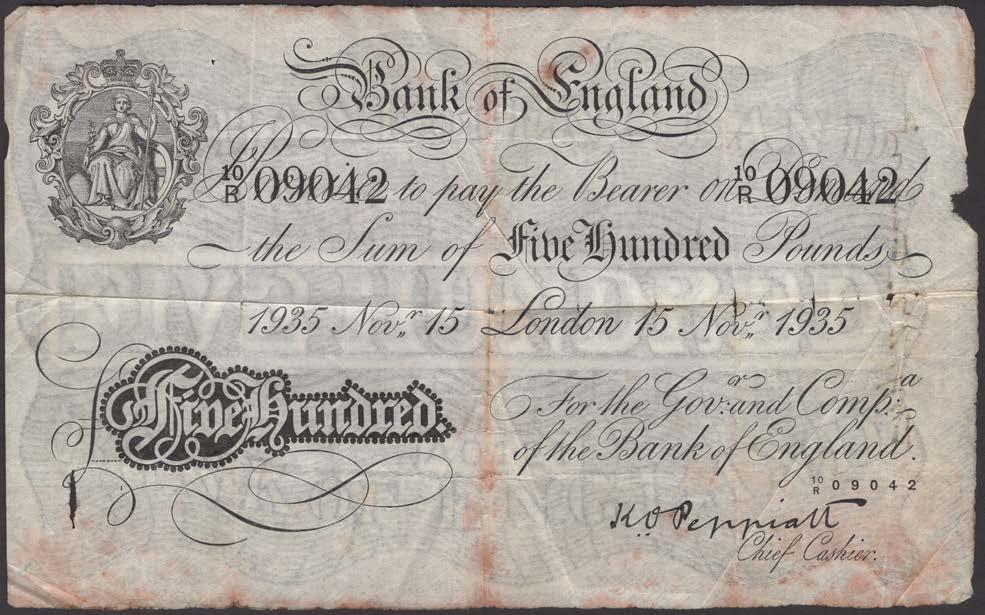 Bank of England
10/R 09042 to pay the Bearer on 10/R 09042
the Sum of Five Hundred Pounds
1935 Nov.r 15 London 15 Nov.r 1935
Five Hundred
For the Gov.r and Comp.a
of the Bank of England.
10/R 09042
K O Peppiatt
Chief Cashier.